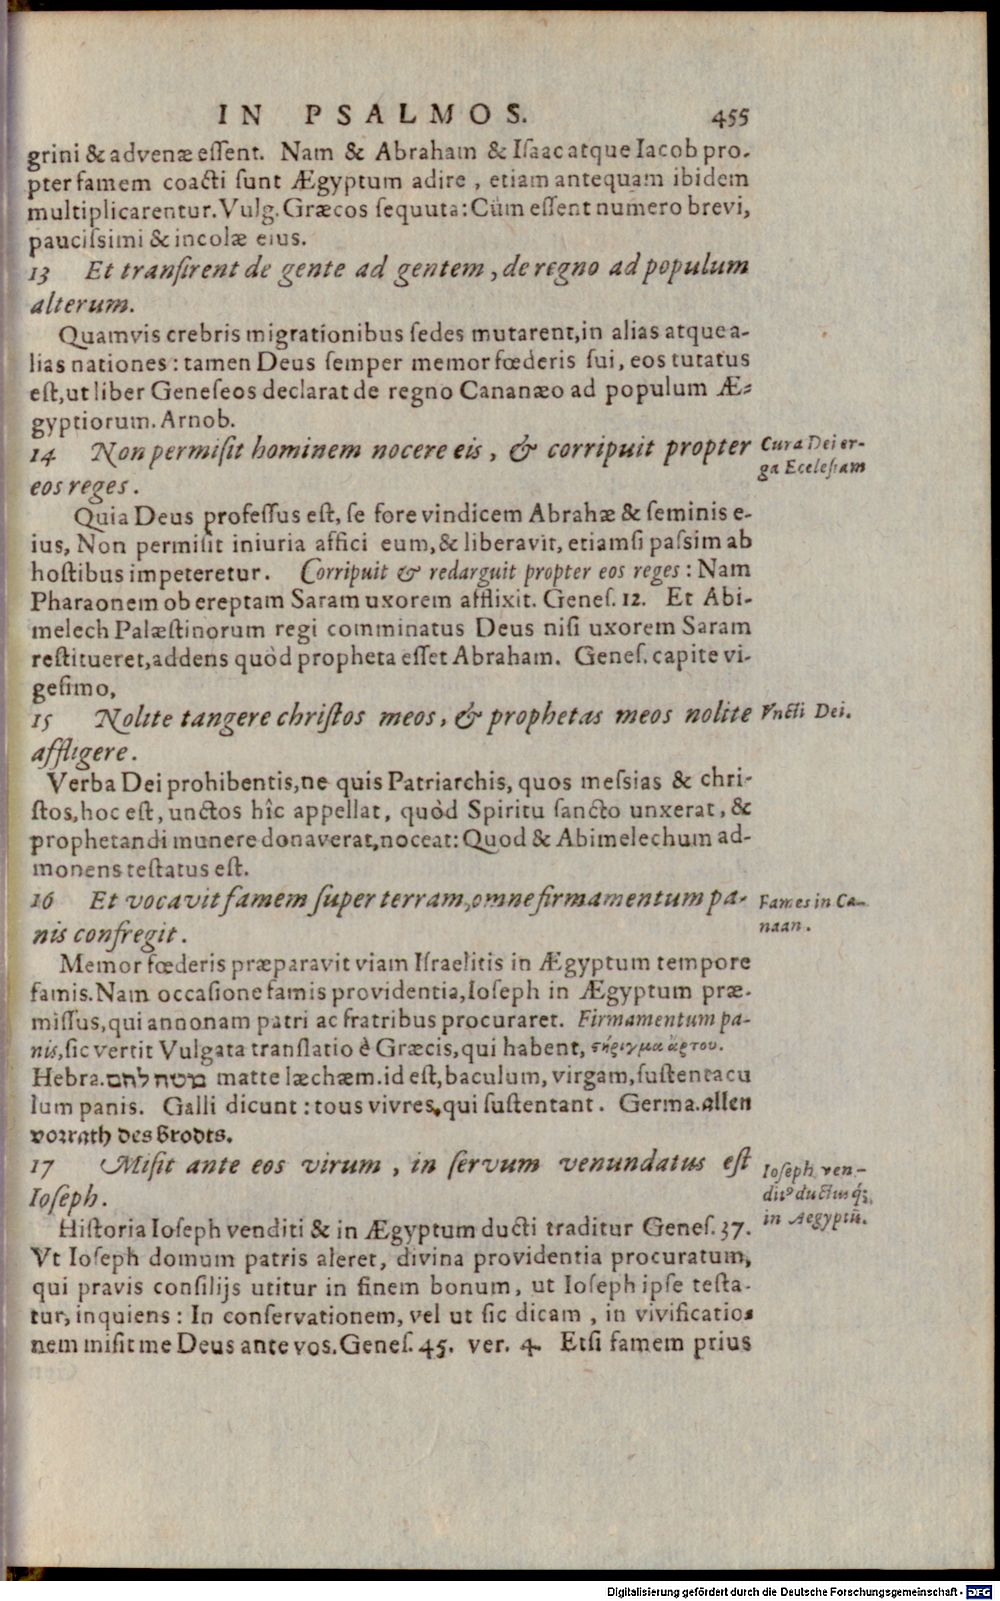 IN PSALMOS. 455
grini & advenæ essent. Nam & Abraham & Isaac atque Iacob pro-
pter famem coacti sunt Ægyptum adire, etiam antequam ibidem
multiplicarentur. Vulg. Græcos sequuta: Cùm essent numero brevi,
paucissimi & incolæ eius.
13 Et transirent de gente ad gentem, de regno ad populum
alterum.
Quamvis crebris migrationibus sedes mutarent, in alias atque a-
lias nationes: tamen Deus semper memor fœderis sui, eos tutatus
est, ut liber Geneseos declarat de regno Cananæo ad populum Æ-
gyptiorum. Arnob.
14 Non permisit hominem nocere eis, & corripuit propter
eos reges.
Cura Dei er-
ga Ecclesiam
Quia Deus professus est, se fore vindicem Abrahæ & seminis e-
ius, Non permisit iniuria affici eum, & liberavit, etiamsi passim ab
hostibus impeteretur. Corripuit & redarguit propter eos reges: Nam
Pharaonem ob ereptam Saram uxorem afflixit. Genes. 12. Et Abi-
melech Palæstinorum regi comminatus Deus nisi uxorem Saram
restitueret, addens quòd propheta esset Abraham. Genes. capite vi-
gesimo,
15 Nolite tangere christos meos, & prophetas meos nolite
affligere.
Vncti Dei.
Verba Dei prohibentis, ne quis Patriarchis, quos messias & chri-
stos, hoc est, unctos hîc appellat, quòd Spiritu sancto unxerat, &
prophetandi munere donaverat, noceat: Quod & Abimelechum ad-
monens testatus est.
16 Et vocavit famem super terram, omne firmamentum pa-
nis confregit.
Fames in Ca-
naan.
Memor fœderis præparavit viam Israelitis in Ægyptum tempore
famis. Nam occasione famis providentia, Ioseph in Ægyptum præ-
missus, qui annonam patri ac fratribus procuraret. Firmamentum pa-
nis, sic vertit Vulgata translatio è Græcis, qui habent, στήριγμα ἄρτου.
Hebra. מטה לחם matte læchæm. id est, baculum, virgam, sustentacu
lum panis. Galli dicunt: tous vivres, qui sustentant. Germa. allen
vorrath des Brodts.
17 Misit ante eos virum, in servum venundatus est
Ioseph.
Ioseph ven-
dit9 ductusq́;
in Aegyptũ.
Historia Ioseph venditi & in Ægyptum ducti traditur Genes. 37.
Vt Ioseph domum patris aleret, divina providentia procuratum,
qui pravis consilijs utitur in finem bonum, ut Ioseph ipse testa-
tur, inquiens: In conservationem, vel ut sic dicam, in vivificatio-
nem misit me Deus ante vos. Genes. 45. ver. 4. Etsi famem prius
Digitalisierung gefördert durch die Deutsche Forschungsgemeinschaft - DFG